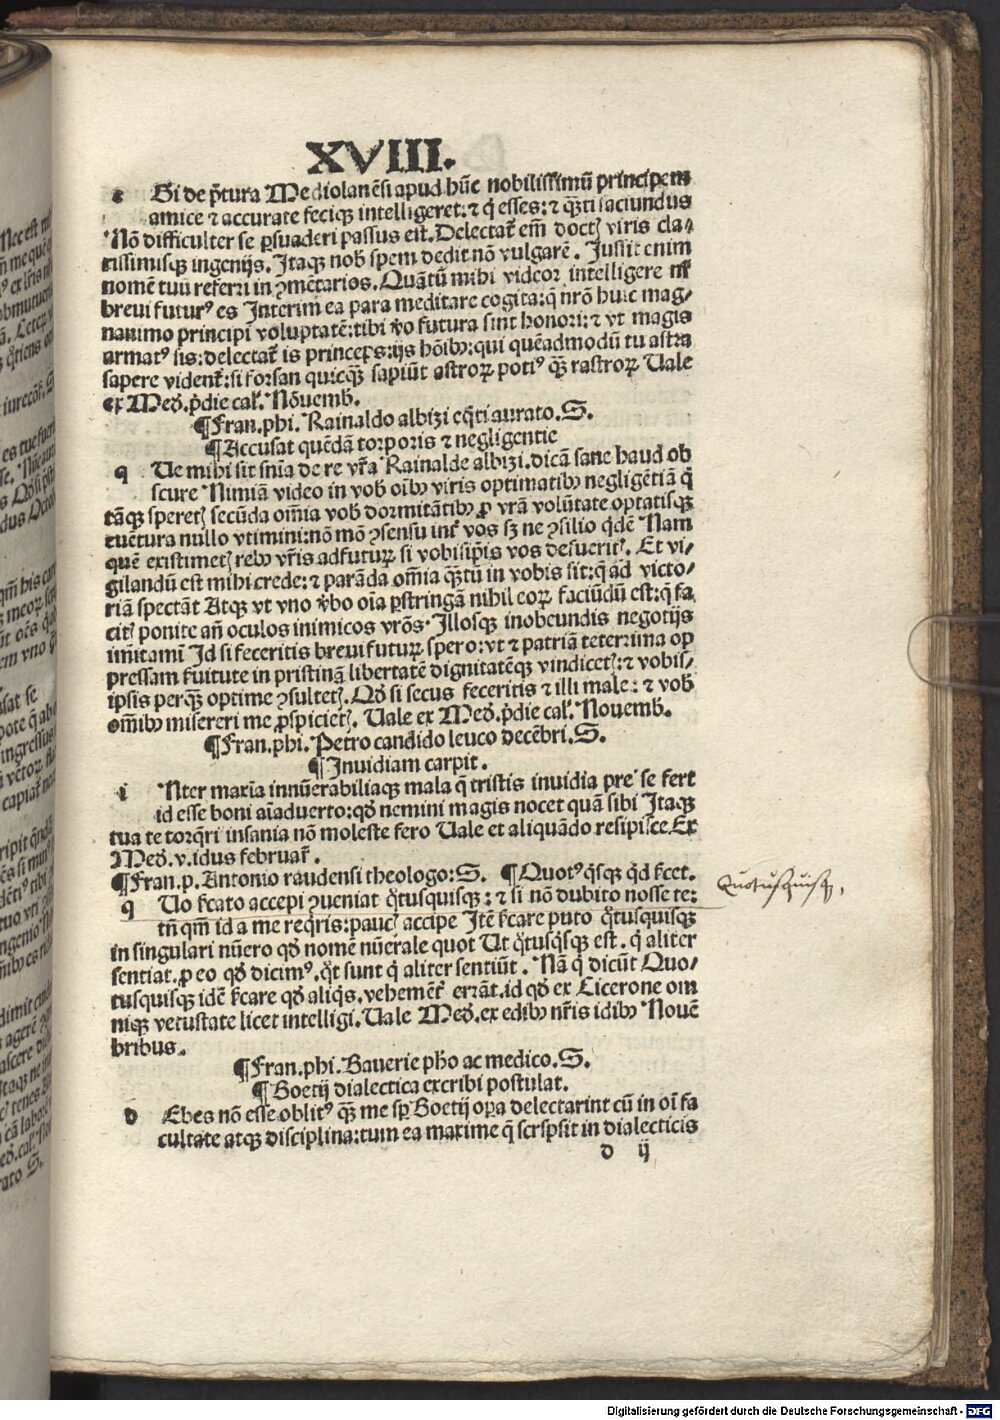 XVIII.
e Gi de p̄tura Mediolanēsi apud hūc nobilissimū principem
amice ⁊ accurate feciqꝫ intelligeret:⁊ q̇ esses:⁊ q̄ꝫti faciundus
Nō difficulter se ꝑsuaderi passus est. Delectat᷑ em̄ doctꝭ viris cla⸗
rissimisqꝫ ingenijs. Itaqꝫ nob̄ spem dedit nō vulgarē. Iussit enim
nomē tuū referri in ꝯmētarios. Quātū mihi videor intelligere
brevi futurꝰ es Interim ea para meditare cogita:q̄ nr̄o huic mag⸗
nanimo principi voluptatē:tibi v̊o futura sint honori:⁊ vt magis
armatꝰ sis:delectat᷑ is princeps:ijs hōibꝫ:qui quēadmodū tu astra
sapere vident᷑:si forsan quicq̄ꝫ sapiūt astroꝝ potiꝰ q̄ꝫ rastroꝝ Uale
ex Med̄. p̄die cal᷑. Nōuemb.
¶Fran.phi. Rainaldo albizi eq̇ti aurato. S.
¶Accusat quēdā torporis ⁊ negligentie
q Ue mihi sit sn̄ia de re vr̄a Rainalde albizi.dicā sane haud ob
scure Nimiā video in vob̄ oībꝫ viris optimatibꝫ negligētiā q̇
tāqꝫ speretꝭ secūda om̄ia vob̄ dormitātibꝫ ꝓ vrā volūtate optatisqꝫ
euētura nullo vtimini:nō mō ꝯsensu int᷑ vos sꝫ ne ꝯsilio q̇dē Nam
quē existimetꝭ rebꝫ vr̄is adfuturꝝ si vobisip̄is vos defuerit᷑. Et vi⸗
gilandū est mihi crede:⁊ parāda om̄ia q̄ꝫtū in vobis sit:q̄ ad victo⸗
riā spectāt Atqꝫ vt vno v̊bo oīa ꝑstringā nihil eoꝝ faciūdū est:q̄ fa
citꝭ ponite an̄ oculos inimicos vrōs. Illosqꝫ inobeundis negotijs
imītamī Id si feceritis brevi futuꝝ spero:vt ⁊ patriā teterrima op
pressam s̄uitute in pristinā libertatē dignitatēqꝫ vindicetꝭ:⁊ vobis⸗
ipsis perq̄ꝫ optime ꝯsultetꝭ. Qd̄ si secus feceritis ⁊ illi male:⁊ vob̄
om̄ibꝫ misereri me ꝑspicietꝭ. Uale ex Med̄. p̄die cal᷑. Nouemb.
¶Fran.phi. Petro candido leuco decēbri. S.
¶Inuidiam carpit.
i Nter maxīa innūerabiliaqꝫ mala q̄ tristis inuidia pre se fert
id esse boni aīaduerto:qd̄ nemini magis nocet quā sibi Itaqꝫ
tua te torq̄ri insania nō moleste fero Uale et aliquādo resipisce. Ex
Med̄. v. idus februar᷑.
¶Fran.p. Antonio raudensi theologo: S. ¶Quotꝰq̇sqꝫ q̇d s̄cet.
q Uo s̄cato accepi ꝯueniat q̊tusquisqꝫ:⁊ si nō dubito nosse te:
tn̄ qm̄ id a me req̇ris:paucꝭ accipe Itē s̄care puto q̊tusquisqꝫ
in singulari nūero qd̄ nomē nūerale quot Ut q̊tusq̇sqꝫ est. q̇ aliter
sentiat. ꝓ eo qd̄ dicimꝰ. q̊t sunt q̇ aliter sentiūt. Nā q̇ dicūt Quo⸗
tusquisqꝫ idē s̄care qd̄ aliq̇s. vehemēt᷑ errāt. id qd̄ ex Cicerone om
niqꝫ vetustate licet intelligi. Uale Med̄. ex edibꝫ nr̄is idibꝫ Nouē
bribus.
Quotusquisqꝫ.
¶Fran.phi. Bauerie pho ac medico. S.
¶Boetij dialectica excribi postulat.
d Ebes nō esse oblitꝰ q̄ꝫ me sp̄ Boetij oꝑa delectarint cū in oī fa
cultate atqꝫ disciplina:tum ea maxime q̄ scrspsit in dialecticis
d ij
Digitalisierung gefördert durch die Deutsche Forschungsgemeinschaft - DFG